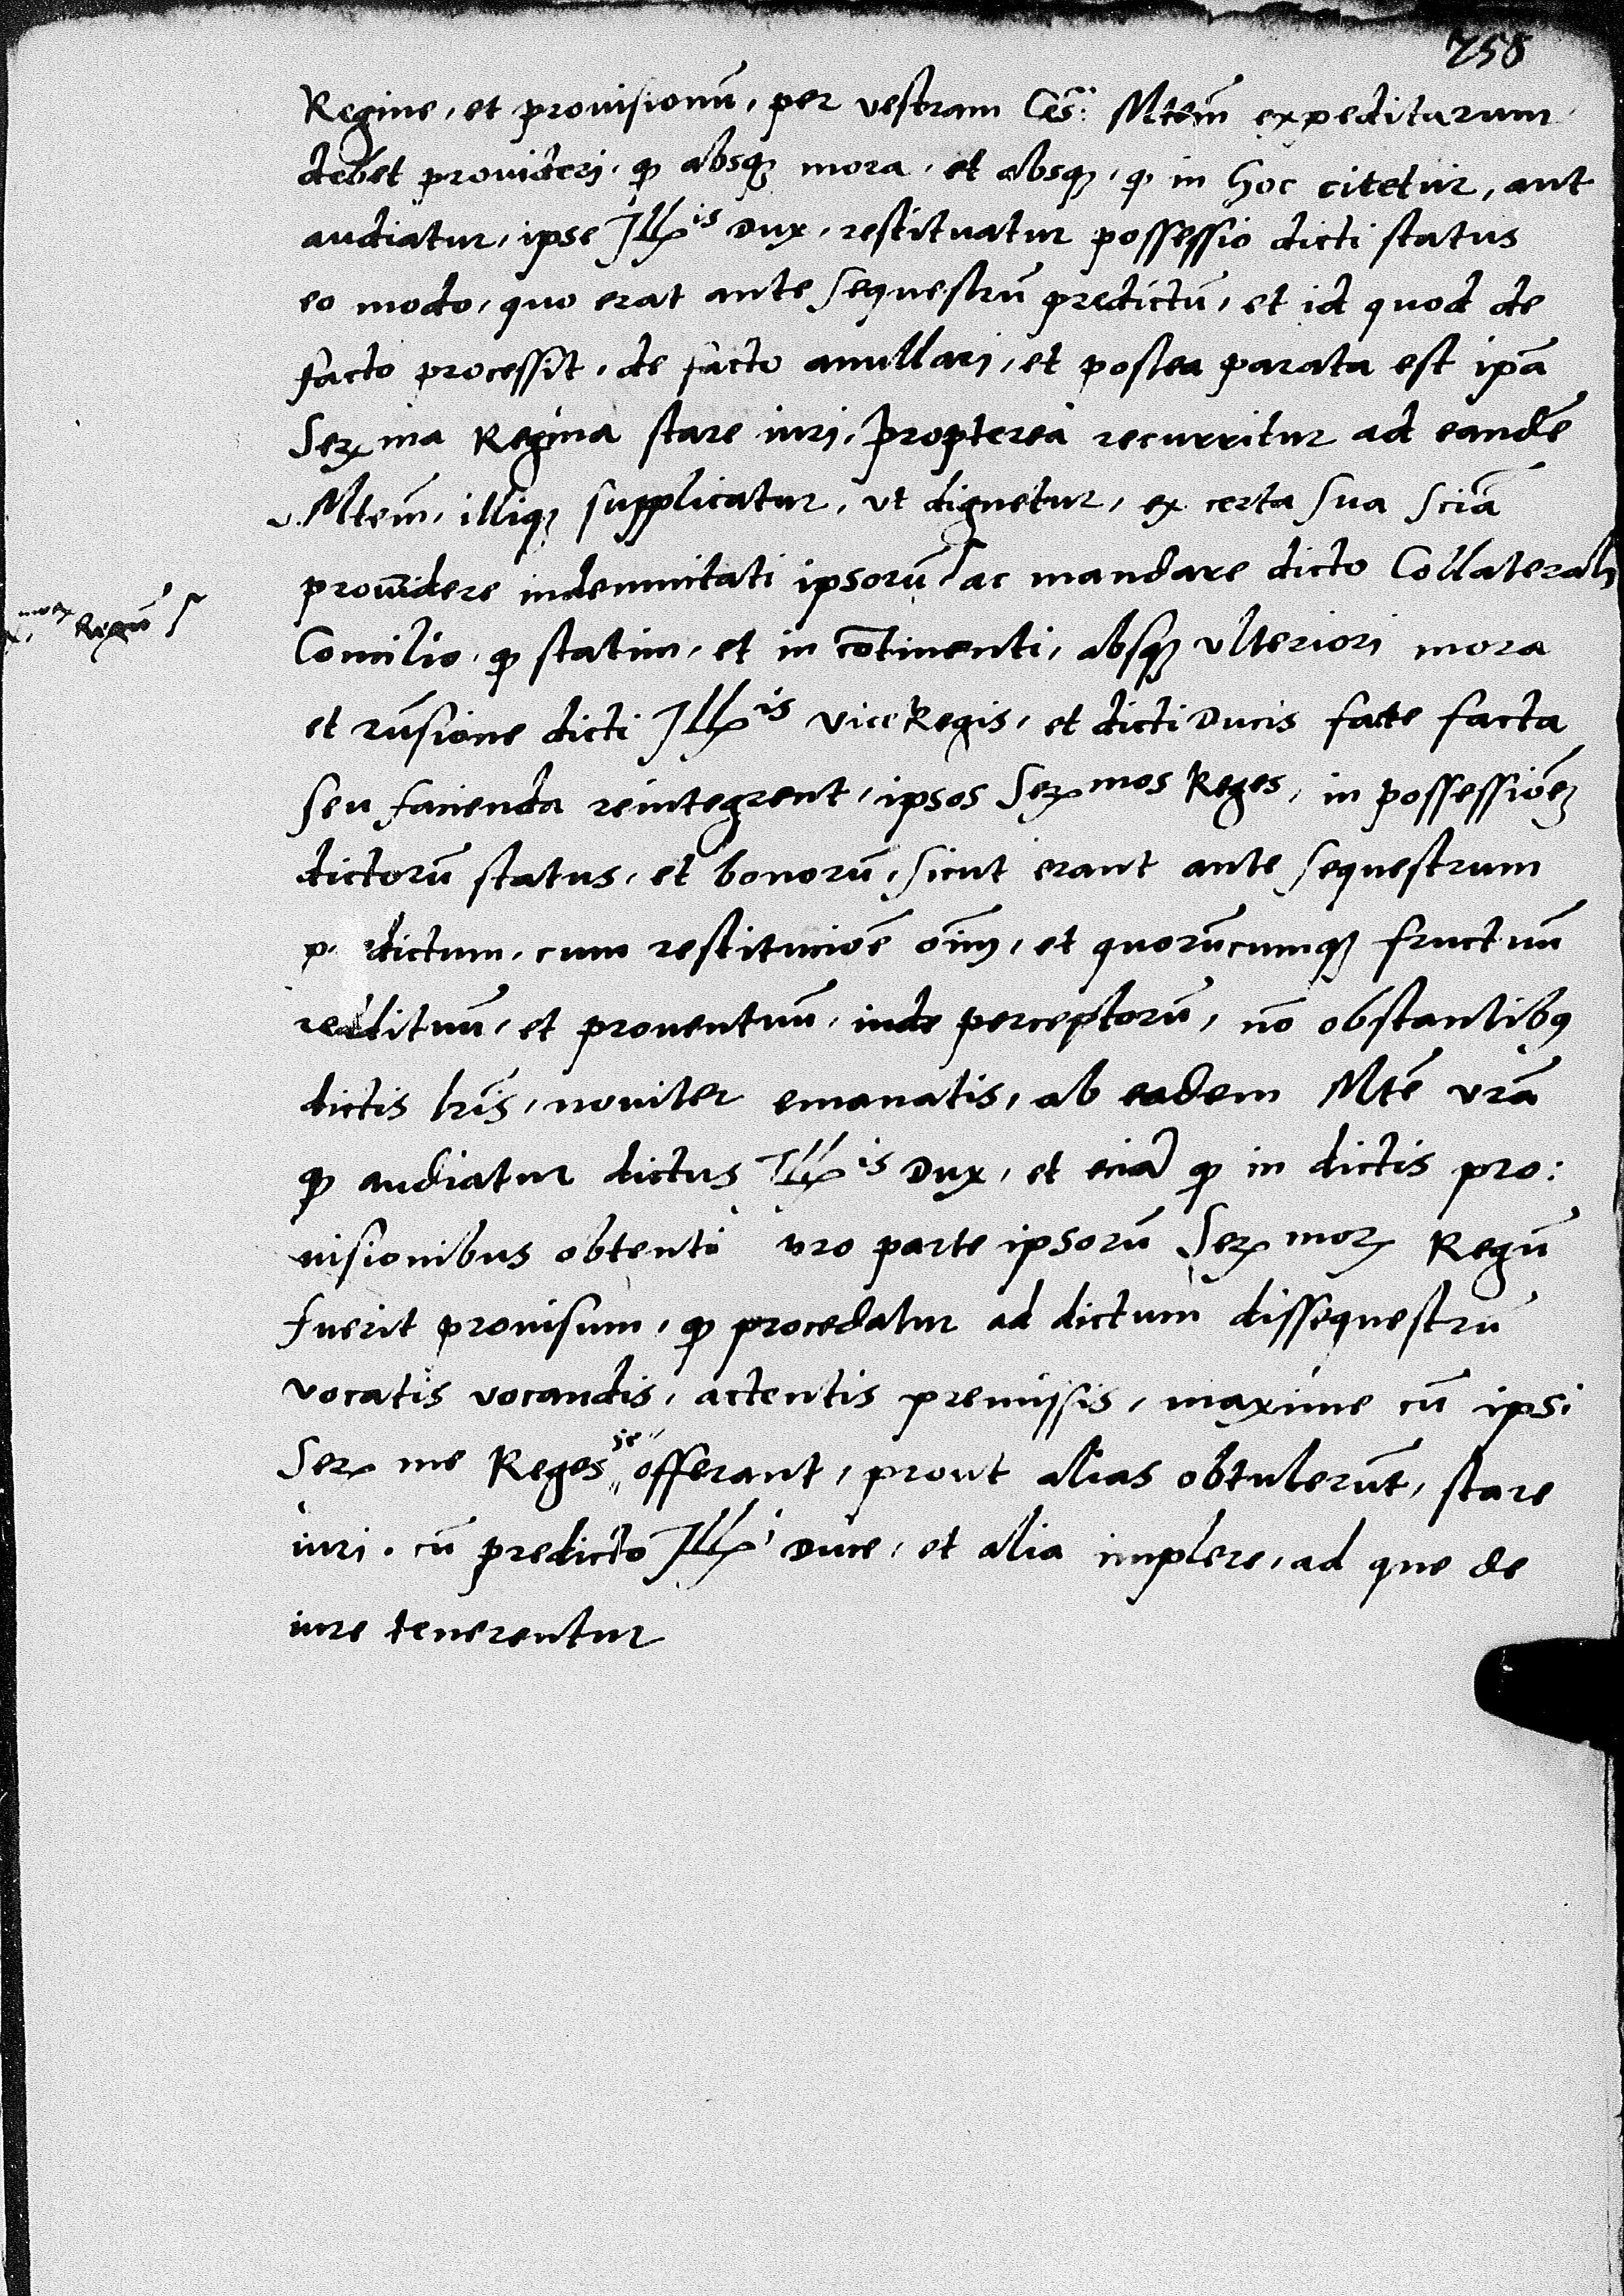 258
Regine, et prouisionũ, per vestram Ces: Mtem̃ expeditarum
debet prouideri, ꝙ absqꝫ mora, et absqꝫ, ꝙ in hoc citetur, aut
audiatur, ipse Illꝭis Dux, restituatur possessio dicti status
eo modo, quo erat ante sequestrũ predictũ, et id quod de
facto processit, de facto anullari, et postea parata est ip̃a
Serꝭma Regina stare iuri, Propterea recurritur ad eandẽ
v. Mtem̃, illiqꝫ supplicatur, vt dignetur, ex certa sua sciã
prouidere indemnitati ipsorũ ac mandare dicto Collaterali
Regũ
Consilio, ꝙ statim, et in cõtinenti, absqꝫ vlteriori mora
et dicti Illꝭis ViceRegis, et dicti Ducis facte facta
seu facienda reintegrent, ipsos Serꝭmos Reges, in possessiõeꝫ
dictorũ status, et bonorũ, sicut erant ante sequestrum
p dictum, cum restitucioẽ oĩm, et quorũcumqꝫ fructuũ
reddituũ, et prouentuũ, inde perceptorũ, nõ obstantibꝰ
dictis lr̃is, nouiter emanatis, ab eadem Mtẽ vr̃a
ꝙ audiatur dictus Illꝭis Dux, et eciã ꝙ in dictis pro:
uisionibus obtenti pro parte ipsorũ Serꝭmorꝝ Regũ
fuerit prouisum, ꝙ procedatur ad dictum dissequestrũ
vocatis vocandis, actentis premissis, maxime cũ ipsi
Serꝭme Reges se offerant, prout alias obtulerũt, stare
iuri, cũ predicto Illꝭi Duce, et alia implere, ad que de
iure tenerentur